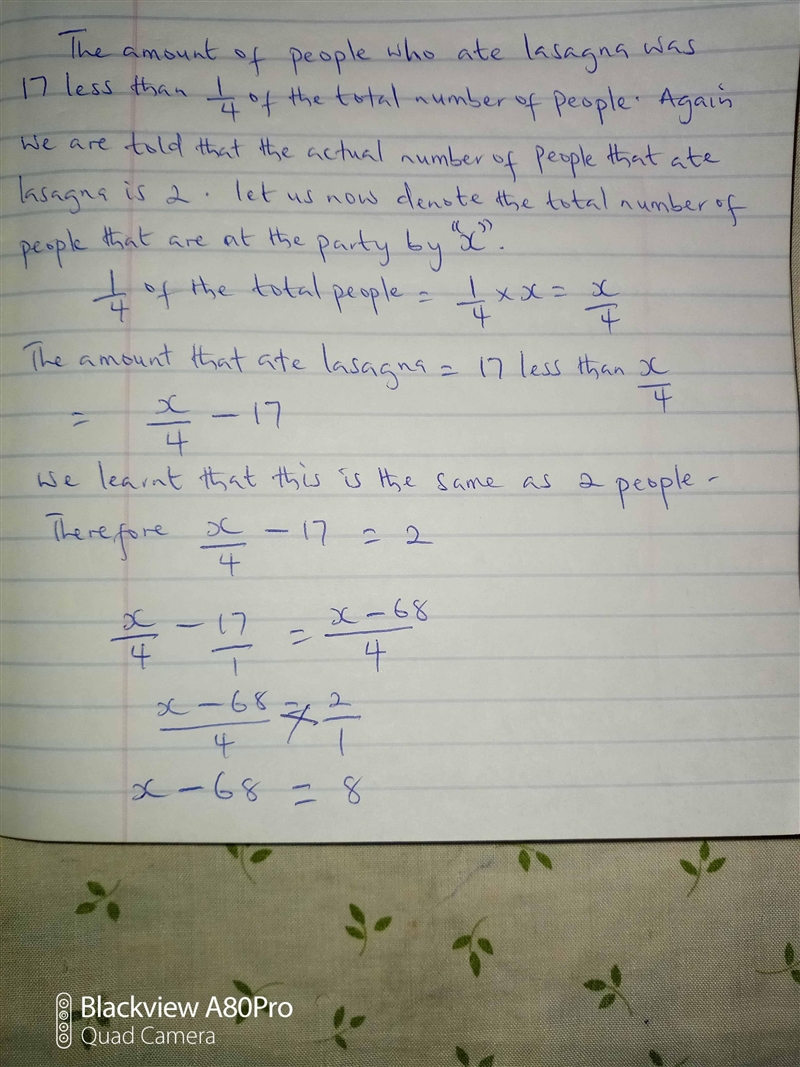 The amount of people who ate lasagna was
17 less than 1/4 of the total number of people. Again
we are told that the actual number of people that ate
lasagna is 2. let us now denote the total number of
people that are at the party by "x".
1/4 of the total people = 1/4 × x = x/4
The amount that ate lasagna = 17 less than x/4
= x/4 - 17
we learnt that this is the same as 2 people -
Therefore x/4 - 17 = 2
x/4 - 17/1 = x - 68/4
x - 68/4 = 2/1
x - 68 = 8
Blackview A80Pro
Quad Camera